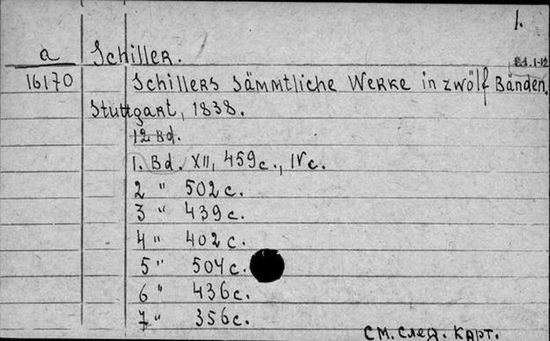 1.
a Schiller.
Bd. 1-12
16170 Schillers sämmtliche Werke in zwölf Bänden.
Stuttgart, 1838.
12 Bd.
1. Bd. XII, 459 с., IV с.
2 " 502 с.
3 " 439 с.
4 " 402 с.
5 " 504 с.
6 " 436 с.
7 " 356 с.
См. след. карт.